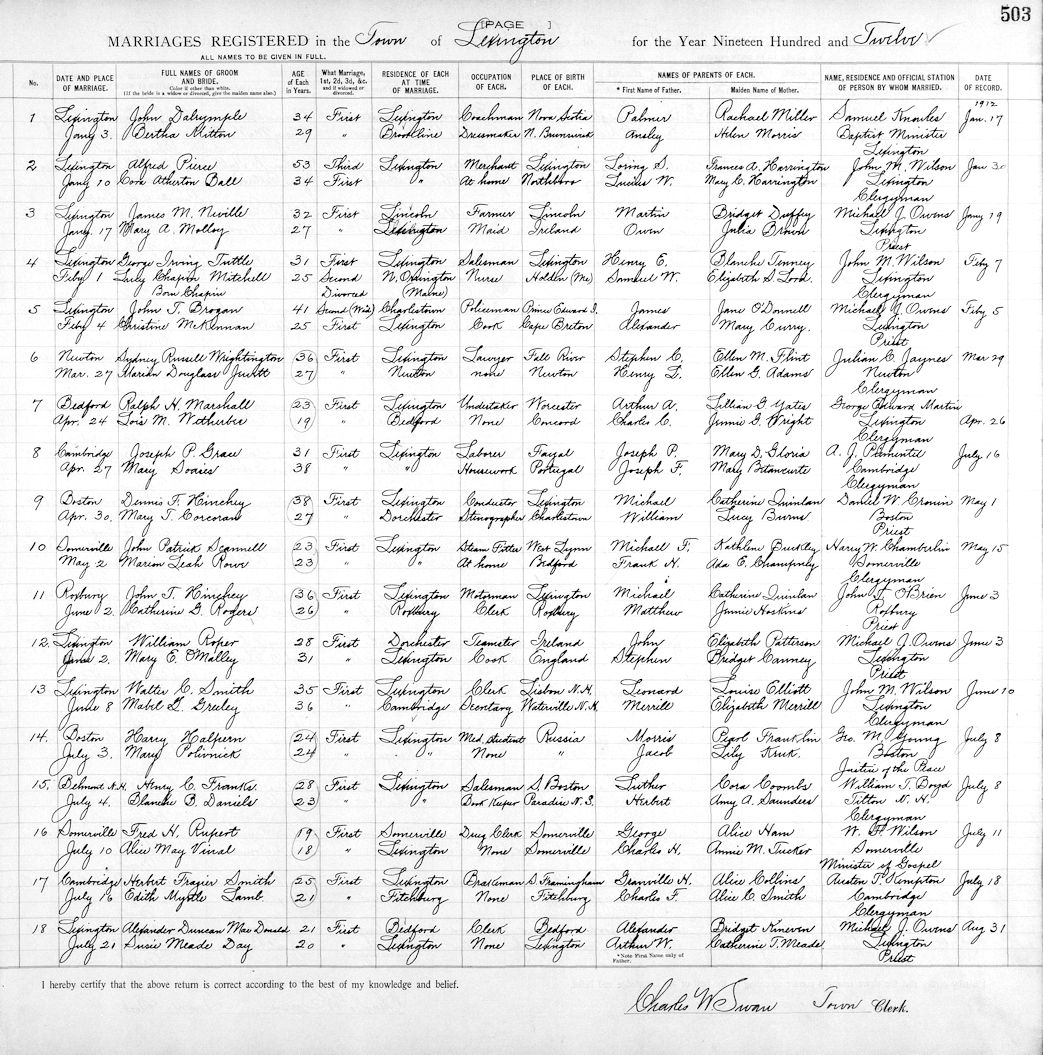 503
[PAGE ]
MARRIAGES REGISTERED in the Town of Lexington for the Year Nineteen Hundred and Twelve
ALL NAMES TO BE GIVEN IN FULL.
No. DATE AND PLACE OF MARRIAGE. FULL NAMES OF GROOM AND BRIDE. Color if other than white. (If the bride is a widow or divorced, give the maiden name also.) AGE of Each in Years. What Marriage, 1st, 2d, 3d, &c. and if widowed or divorced. RESIDENCE OF EACH AT TIME OF MARRIAGE. OCCUPATION OF EACH. PLACE OF BIRTH OF EACH. NAMES OF PARENTS OF EACH. * First Name of Father. Maiden Name of Mother. NAME, RESIDENCE AND OFFICIAL STATION OF PERSON BY WHOM MARRIED. DATE OF RECORD.
1912
1 Lexington John Dalrymple 34 First Lexington Coachman Nova Scotia Palmer Rachael Miller Samuel Knowles Jan. 17
Jany 3. Bertha Mitton 29 " Brookline Dressmaker N. Brunswick Ansley Helen Morris Baptist Minister
Lexington
2 Lexington Alfred Pierce 53 Third Lexington Merchant Lexington Loring S. Frances A. Harrington John M. Wilson Jan 30
Jany 10 Cora Atherton Ball 34 First " At home Northboro Lucius W. Mary C. Harrington Lexington
Clergyman
3 Lexington James M. Neville 32 First Lincoln Farmer Lincoln Martin Bridget Duffey Michael J. Owens Jany 19
Jany. 17 Mary A. Molloy 27 " Lexington Maid Ireland Owen Julia Lexington
Priest
4 Lexington George Irving Tuttle 31 First Lexington Salesman Lexington Henry E. Blanche Tenney John M. Wilson Feby 7
Feby 1 Lucy Chapin Mitchell 25 Second N. Orrington Nurse Holden (Me) Samuel W. Elizabeth S. Lord. Lexington
Born Chapin Divorced (Maine) Clergyman
5 Lexington John T. Brogan 41 Second (Wid.) Charlestown Policeman Prince Edward I. James Jane O'Donnell Michael J. Owens Feby 5
Feby 4 Christine McKinnan 25 First Lexington Cook Cape Breton Alexander Mary Curry. Lexington
Priest
6 Newton Sydney Russell Wrightington 36 First Lexington Lawyer Fall River Stephen C. Ellen M. Flint Julian C. Jaynes Mar 29
Mar. 27 Marian Douglass Jewett 27 " Newton none Newton Henry Ellen G. Adams Newton
Clergyman
7 Bedford Ralph H. Marshall 23 First Lexington Undertaker Worcester Arthur A. Lillian G. Yates George Edward Martin
Apr. 24 Lois M. Witherbee 19 " Bedford None Concord Charles C. Jennie G. Wright Lexington Apr. 26
Clergyman
8 Cambridge Joseph P. Grace 31 First Lexington Laborer Fayal Joseph P. Mary D. Gloria A. J. Pimentel July 16
Apr. 27 Mary Soares 38 " " Housework Portugal Joseph F. Mary Betancurte Cambridge
Clergyman
9 Boston Dennis T. Hinchey 38 First Lexington Conductor Lexington Michael Catherine Quinlan Daniel W. Cronin May 1
Apr. 30. Mary T. Corcoran 27 " Dorchester Stenographer Charlestown William Lucy Burns Boston
Priest
10 Somerville John Patrick Scannell 23 First Lexington Steam Fitter West Lynn Michael F. Kathlene Buckley Harry W. Chamberlin May 15
May 2 Marion Leah Rowe 23 " " At home Bedford Frank H. Ada E. Champney Somerville
Clergyman
11 Roxbury John T. Hinchey 36 First Lexington Motorman Lexington Michael Catherine Quinlan John T. O'Brien June 3
June 2. Catherine G. Rogers 26 " Roxbury Clerk Roxbury Matthew Jennie Hoskins Roxbury
Priest
12. Lexington William Roper 28 First Dorchester Teamster Ireland John Elizabeth Patterson Michael J. Owens June 3
June 2. Mary E. O'Malley 31 " Lexington Cook England Stephen Bridget Canney Lexington
Priest
13 Lexington Walter C. Smith 35 First Lexington Clerk Lisbon N.H. Leonard Louise Elliott John M. Wilson June 10
June 8 Mabel L. Greeley 36 " Cambridge Secretary Waterville N.H. Merrill Elizabeth Merrill Lexington
Clergyman
14. Boston Harry Halpern 24 First Lexington Med. Student Russia Morris Pearl Franklin Geo. M. Young July 8
July 3. Mary Polivnick 24 " " None " Jacob Lily Kruk. Boston
Justice of the Peace
15. Belmont N.H. Henry C. Franks. 28 First Lexington Salesman S. Boston Luther Cora Coombs William T. Boyd July 8
July 4. Blanche B. Daniels 23 " " Book Keeper Paradise N.S. Herbert Amy A. Saunders Tilton N.H.
Clergyman
16 Somerville Fred H. Rupert 19 First Somerville Drug Clerk Somerville George Alice Ham W. F. Wilson July 11
July 10 Alice May Vinal 18 " Lexington None Somerville Charles H. Annie M. Tucker Somerville
Minister of Gospel
17 Cambridge Herbert Frazier Smith 25 First Lexington Brakeman S. Framingham Granville H. Alice Collins Austin T. Kempton July 18
July 16 Edith Myrtle Lamb 21 " Fitchburg None Fitchburg Charles F. Alice C. Smith Cambridge
Clergyman
18 Lexington Alexander Duncan Mac Donald 21 First Bedford Clerk Bedford Alexander Bridget Kineven Michael J. Owens Aug 31
July 21 Susie Meade Day 20 " Lexington None Lexington Arthur W. Catherine T. Meade Lexington
Priest
* Note First Name only of Father.
I hereby certify that the above return is correct according to the best of my knowledge and belief.
Charles W. Swan Town Clerk.